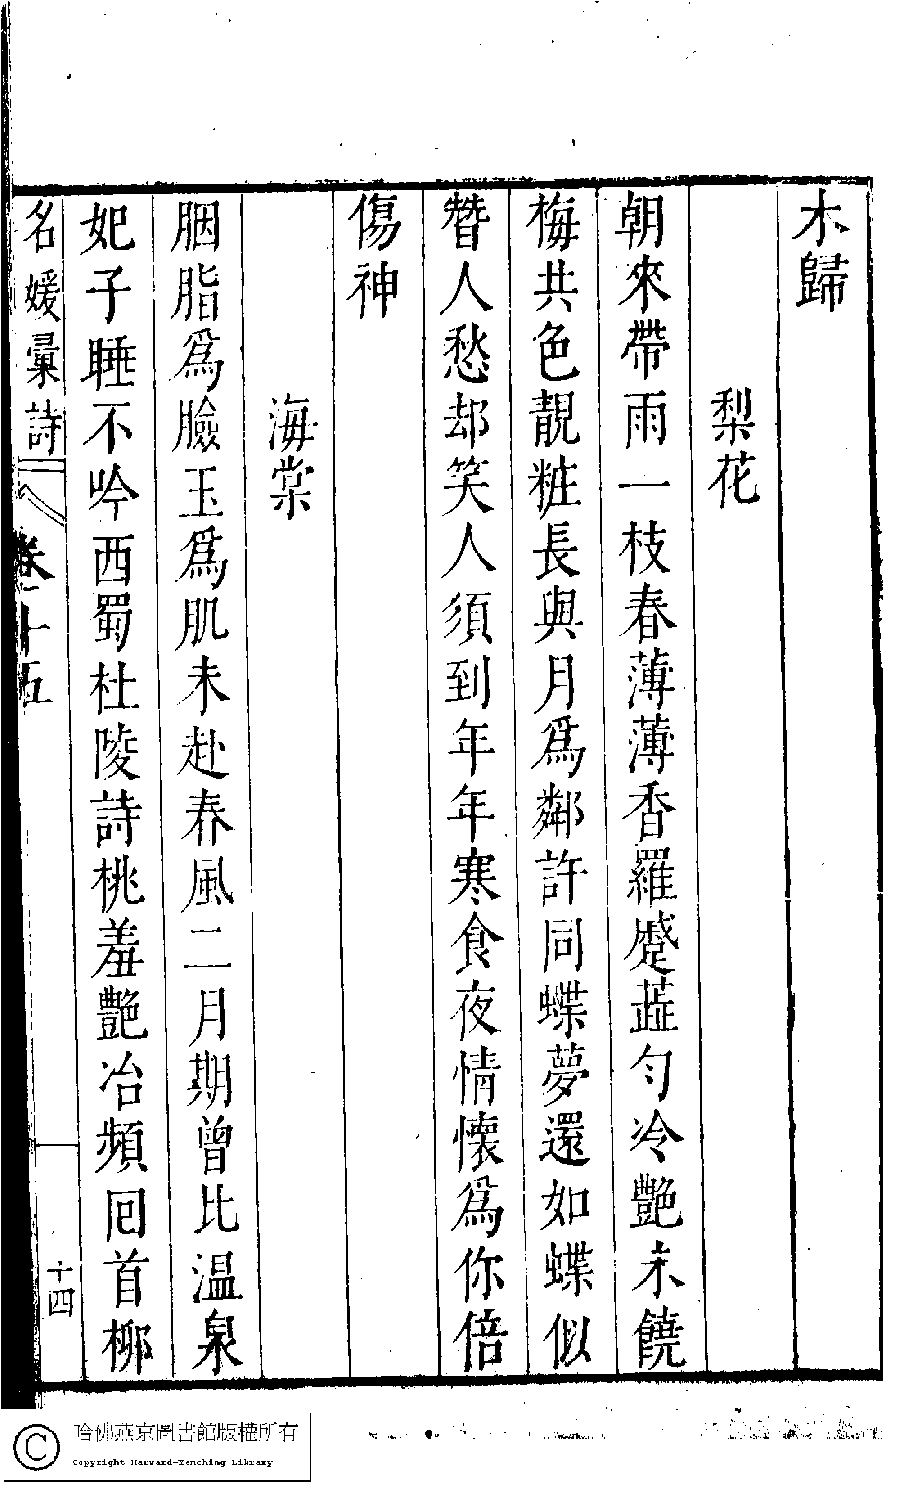 木歸
梨花
朝來帶雨一枝春薄薄香羅蹙蘂勻冷艷未饒
梅共色靚粧長與月爲鄰許同蝶夢還如蝶似
替人愁却笑人須到年年寒食夜情懷爲你倍
傷神
海棠
胭脂爲臉玉爲肌未赴春風二月期曾比溫泉
妃子睡不吟西蜀杜陵詩桃羞艷冶頻回首柳
名媛彙詩 卷十五 十四
哈佛燕京圖書館版權所有
Copyright Harvard-Yenching Library